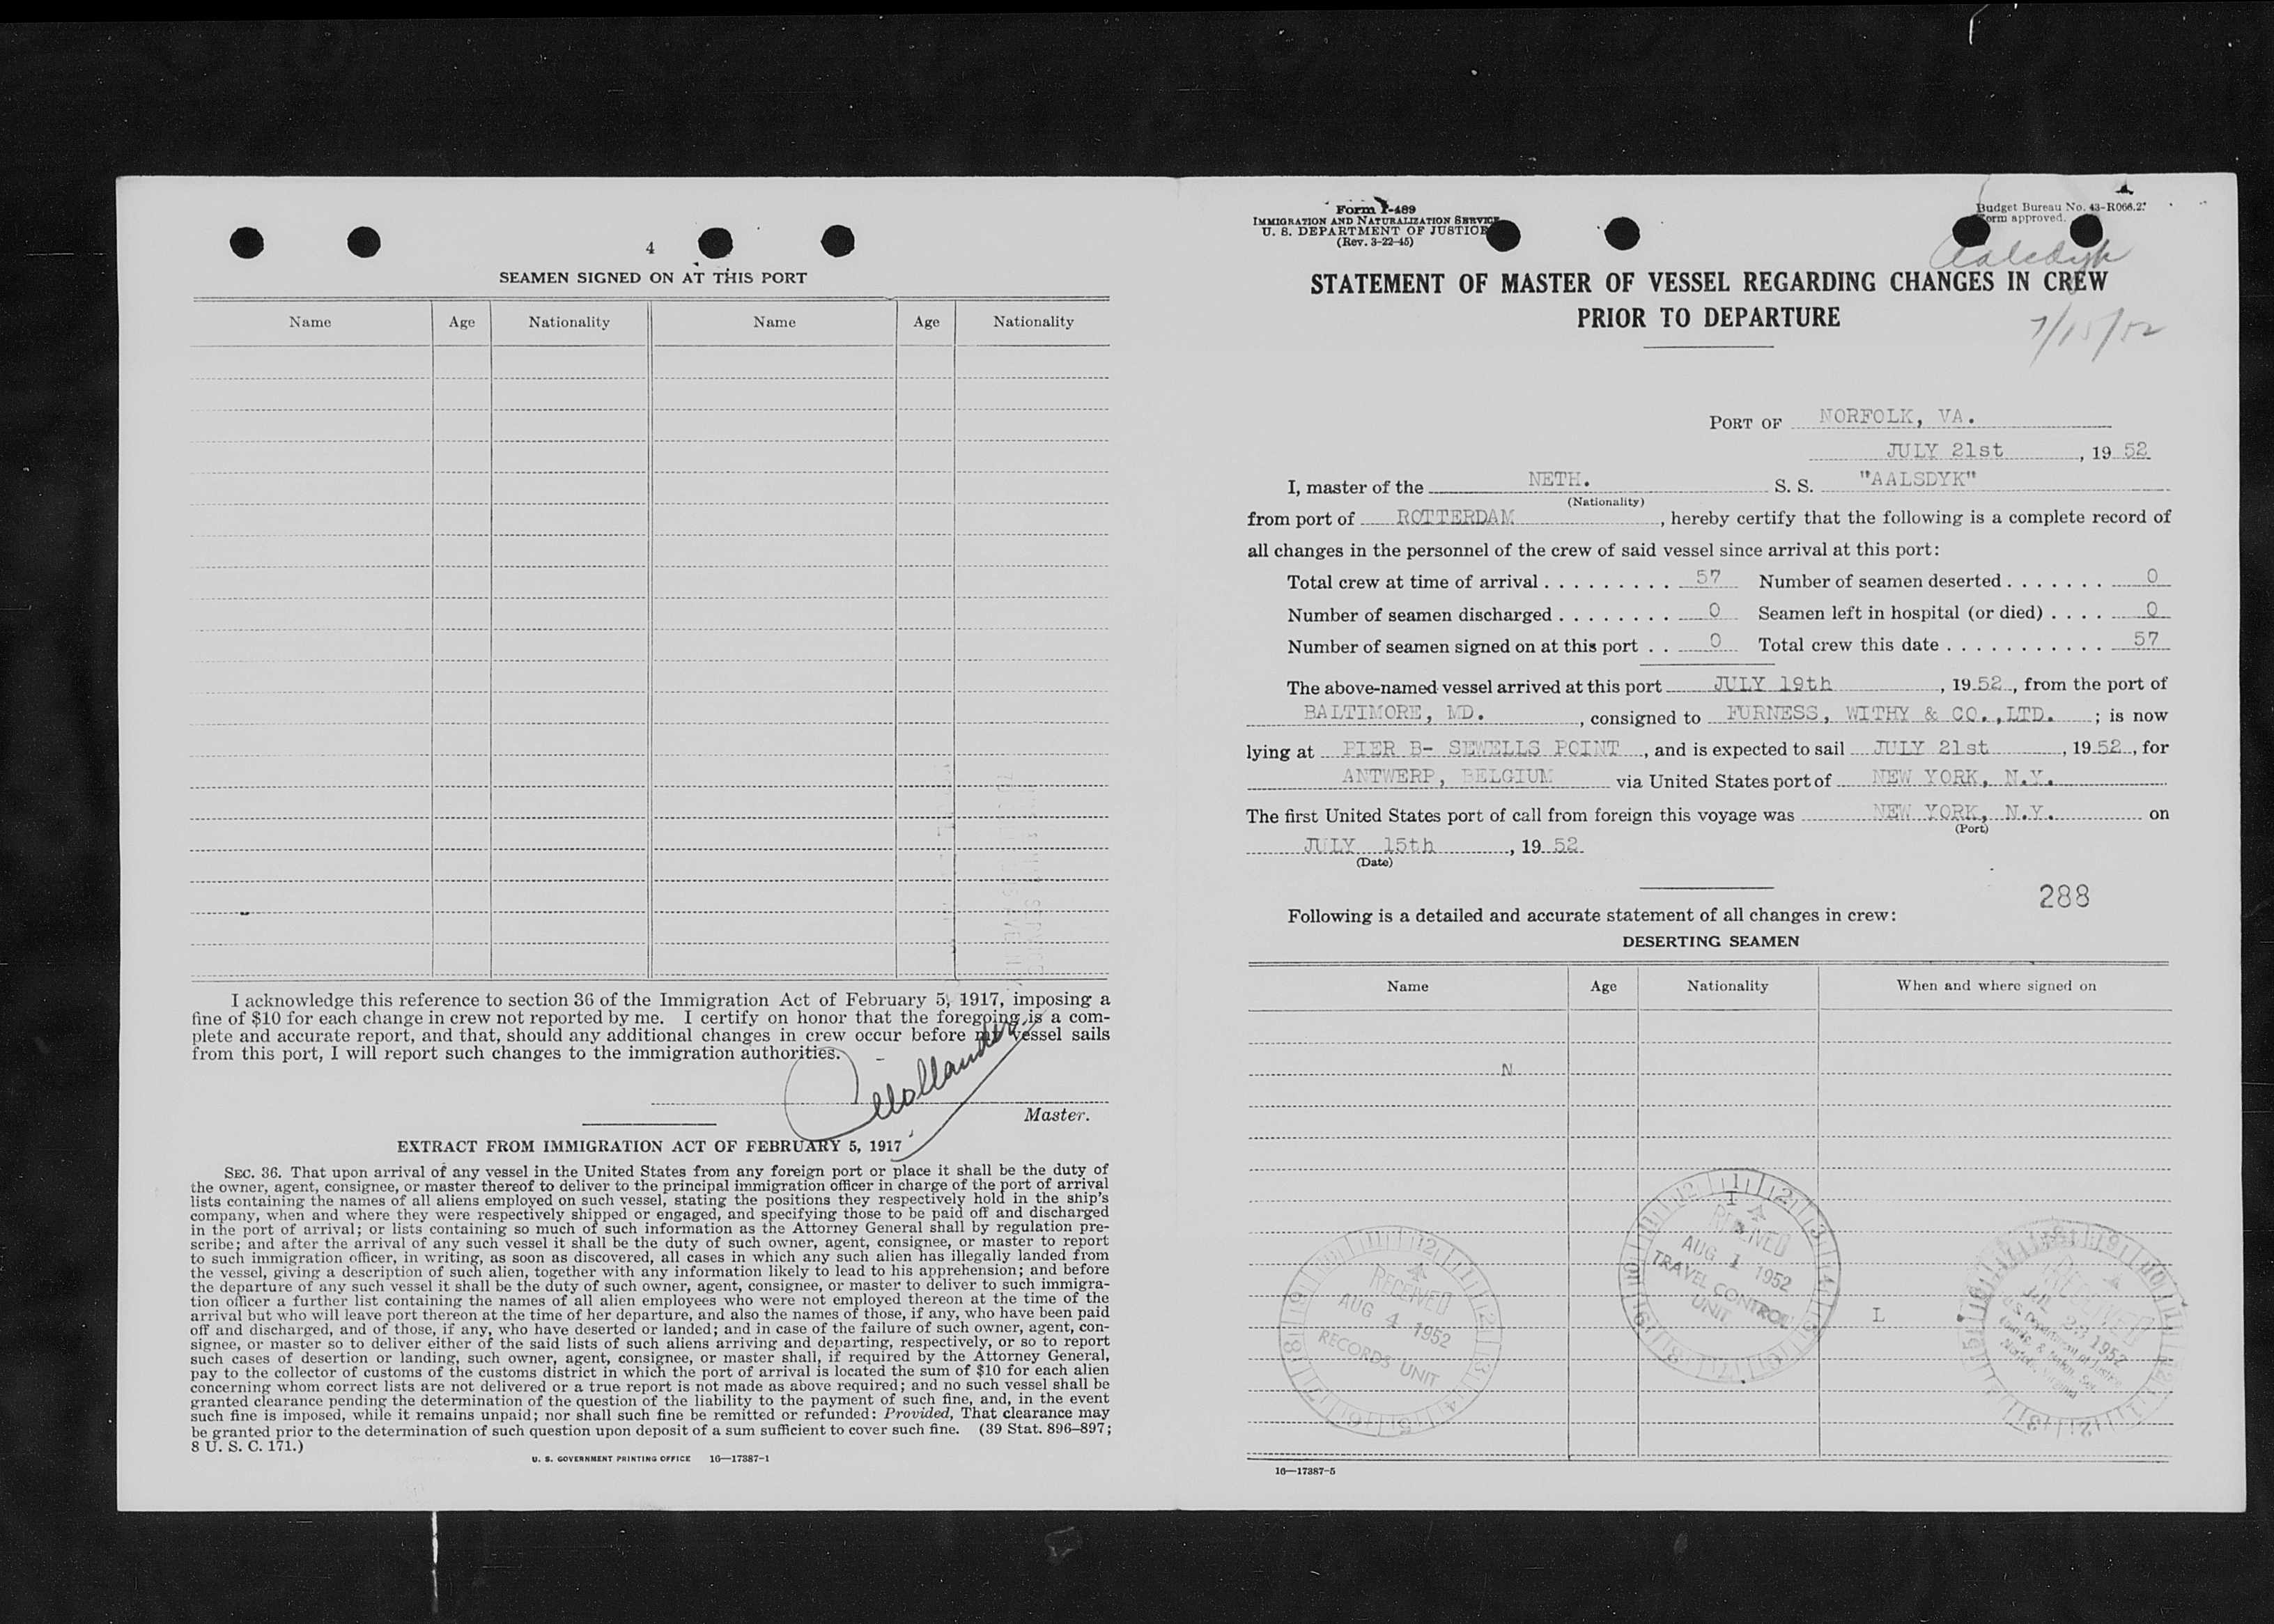 4
SEAMEN SIGNED ON AT THIS PORT
Name Age Nationality Name Age Nationality
I acknowledge this reference to section 36 of the Immigration Act of February 5, 1917, imposing a
fine of $10 for each change in crew not reported by me. I certify on honor that the foregoing is a com-
plete and accurate report, and that, should any additional changes in crew occur before my vessel sails
from this port, I will report such changes to the immigration authorities.
Master.
EXTRACT FROM IMMIGRATION ACT OF FEBRUARY 5, 1917
SEC. 36. That upon arrival of any vessel in the United States from any foreign port or place it shall be the duty of
the owner, agent, consignee, or master thereof to deliver to the principal immigration officer in charge of the port of arrival
lists containing the names of all aliens employed on such vessel, stating the positions they respectively hold in the ship's
company, when and where they were respectively shipped or engaged, and specifying those to be paid off and discharged
in the port of arrival; or lists containing so much of such information as the Attorney General shall by regulation pre-
scribe; and after the arrival of any such vessel it shall be the duty of such owner, agent, consignee, or master to report
to such immigration officer, in writing, as soon as discovered, all cases in which any such alien has illegally landed from
the vessel, giving a description of such alien, together with any information likely to lead to his apprehension; and before
the departure of any such vessel it shall be the duty of such owner, agent, consignee, or master to deliver to such immigra-
tion officer a further list containing the names of all alien employees who were not employed thereon at the time of the
arrival but who will leave port thereon at the time of her departure, and also the names of those, if any, who have been paid
off and discharged, and of those, if any, who have deserted or landed; and in case of the failure of such owner, agent, con-
signee, or master so to deliver either of the said lists of such aliens arriving and departing, respectively, or so to report
such cases of desertion or landing, such owner, agent, consignee, or master shall, if required by the Attorney General,
pay to the collector of customs of the customs district in which the port of arrival is located the sum of $10 for each alien
concerning whom correct lists are not delivered or a true report is not made as above required; and no such vessel shall be
granted clearance pending the determination of the question of the liability to the payment of such fine, and, in the event
such fine is imposed, while it remains unpaid; nor shall such fine be remitted or refunded: Provided, That clearance may
be granted prior to the determination of such question upon deposit of a sum sufficient to cover such fine. (39 Stat. 896–897;
8 U. S. C. 171.)
U. S. GOVERNMENT PRINTING OFFICE 16—17387-1
Form I-489
IMMIGRATION AND NATURALIZATION SERVICE
U. S. DEPARTMENT OF JUSTICE
(Rev. 3-22-45)
Budget Bureau No. 43-R066.2.
Form approved.
Aalsdyk
STATEMENT OF MASTER OF VESSEL REGARDING CHANGES IN CREW
PRIOR TO DEPARTURE
7/15/52
PORT OF NORFOLK, VA.
JULY 21st, 19 52
I, master of the NETH. S. S. "AALSDYK"
(Nationality)
from port of ROTTERDAM, hereby certify that the following is a complete record of
all changes in the personnel of the crew of said vessel since arrival at this port:
Total crew at time of arrival . . . . . . . . . 57 Number of seamen deserted . . . . . . . 0
Number of seamen discharged . . . . . . . . 0 Seamen left in hospital (or died) . . . . 0
Number of seamen signed on at this port . . 0 Total crew this date . . . . . . . . . . . 57
The above-named vessel arrived at this port JULY 19th, 19 52, from the port of
BALTIMORE, MD., consigned to FURNESS, WITHY & CO.,LTD. ; is now
lying at PIER B- SEWELLS POINT, and is expected to sail JULY 21st, 19 52, for
ANTWERP, BELGIUM via United States port of NEW YORK, N.Y.
The first United States port of call from foreign this voyage was NEW YORK, N.Y. on
(Port)
JULY 15th, 19 52
(Date)
288
Following is a detailed and accurate statement of all changes in crew:
DESERTING SEAMEN
Name Age Nationality When and where signed on
N
I
L
RECEIVED
AUG 4 1952
RECORDS UNIT
RECEIVED
AUG 1 1952
TRAVEL CONTROL
UNIT
RECEIVED
JUL 23 1952
U.S. Department of Justice
Norfolk, Virginia
16—17387-5